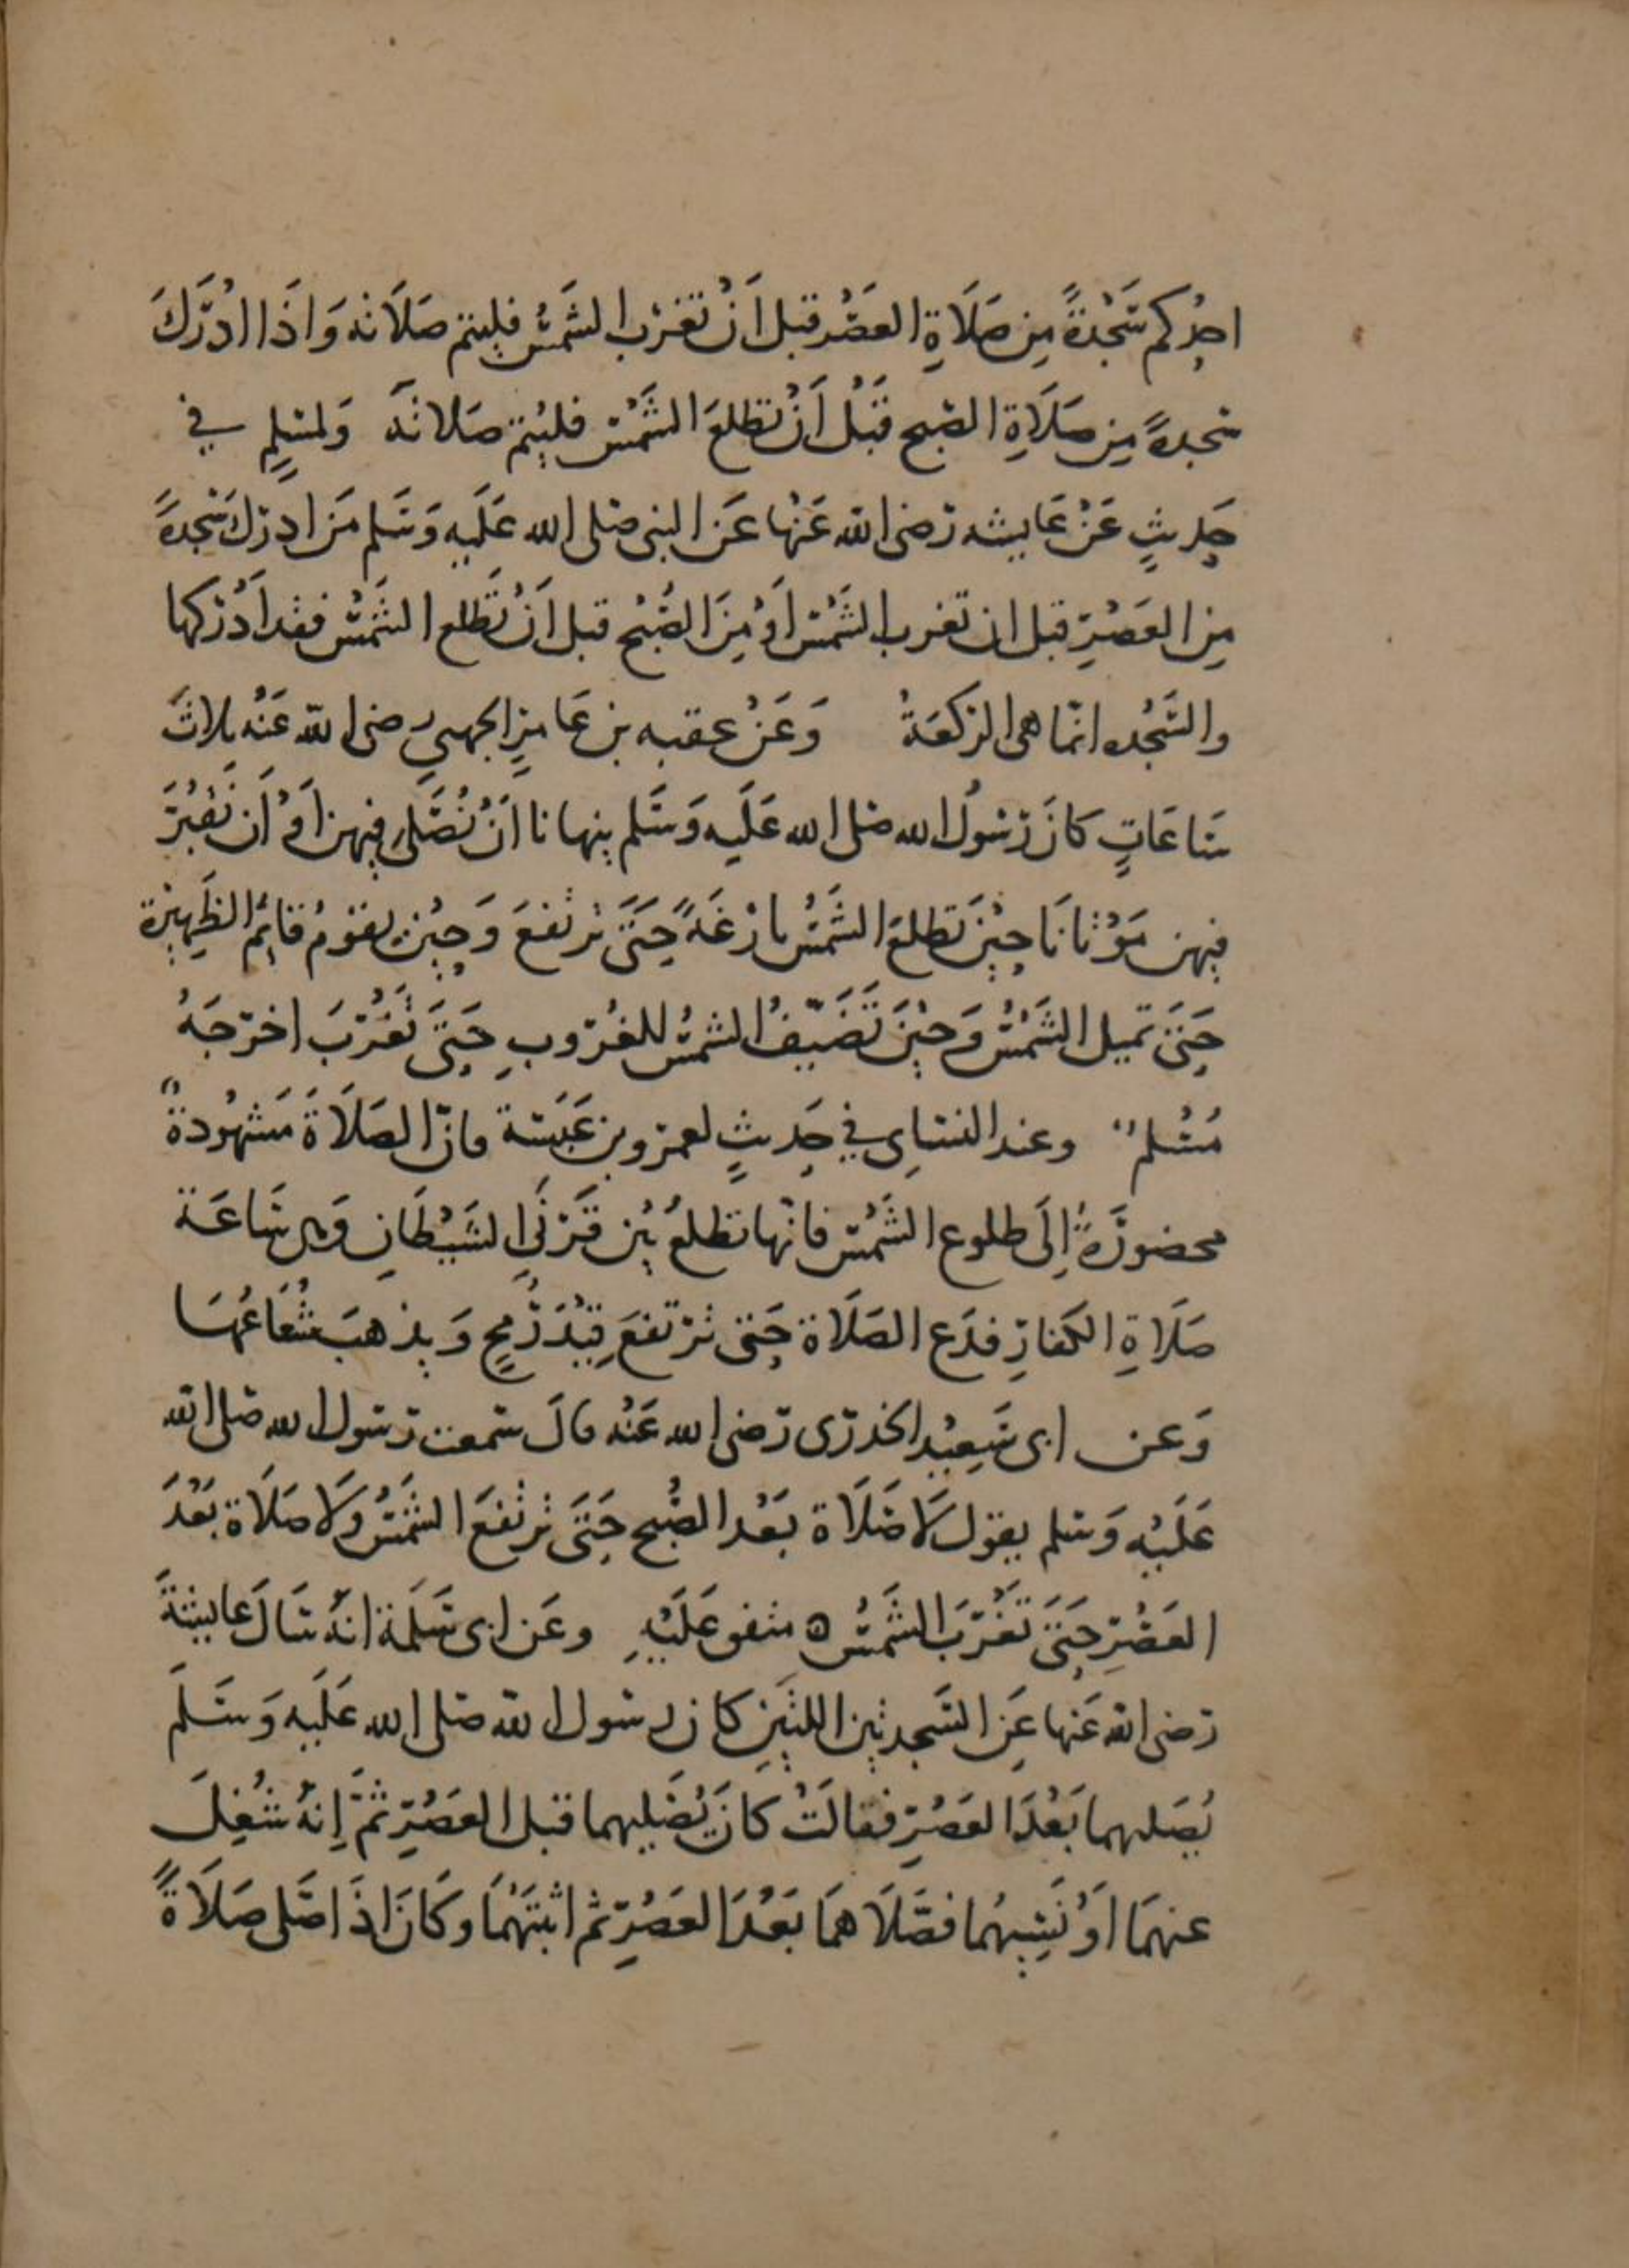 احدكم سَجْدةً مِن صَلَاةِ العَصْر قبل اَنْ تغرب الشَمْسُ فليتم صَلَاته وَاذَا ادْرَكَ
سجدةً مِن صَلَاةِ الصبح قَبْل أَنْ تطلعَ الشَمْس فليُتم صَلاتَه وَلمسْلمٍ في
حَديثٍ عَنْ عَايشه رَضى الله عَنْها عَن النبى صَلى الله عَلَيه وَسَلم مَن ادرك سَجْدةً
مِن العَصْرِ قبل ان تغرب الشَمْس اَوْ مِنَ الصُبْح قبل اَنْ تَطلع الشَمْسُ فقد اَدْركها
والسَجْده انّما هى الركعَةُ وَعَنْ عقبه بن عَامرٍ الجهنى رضى الله عَنْه ثلاثَ
سَاعَاتٍ كانَ رَسُولُ الله صَلى الله عَلَيه وَسَلم ينهانا اَنْ نُصَلى فيهن اَوْ اَن نَقْبُرَ
فيهن مَوْتانَا حِيْنَ تَطلع الشَمْسُ بازغَةً حَتىَ ترتفعَ وَحِيْنَ يقومُ قايمُ الظَهِيرة
حَتىَ تميل الشَمْسُ وَحيْنَ تَضَيّفُ الشمسُ للغُرُوبِ حَتىَ تَغْرُبَ اخرَجَهُ
مُسْلم وعند النسَاى في حَديثٍ لعمرو بن عَبَسَة فانّ الصَلَاةَ مَشْهُودةٌ
محضورَةٌ اِلَى طلوع الشَمْس فانّها تطلعُ بَيْن قَرْنَى الشَيْطَانِ وَهى سَاعَة
صَلَاةِ الكفارِ فدَع الصَلَاة حَتى ترتفعَ قِيْدَ رُمحٍ وَيذهبَ شُعَاعُهَا
وَعن ابى سَعِيْد الخدرى رَضى الله عَنْه قالَ سَمعت رَسُول الله صَلى الله
عَلَيْه وَسَلم يقول لَا صَلَاة بَعْد الصُبح حَتىَ ترتفعَ الشَمْسُ وَلَا صَلَاة بَعْدَ
العَصْرِ حَتىَ تَغْرُبَ الشَمْسُ ه متفق عَلَيْهِ وعَن ابى سَلَمَة انهُ سَالَ عايشَةَ
رَضى الله عَنها عَن السَجدتين اللتَيْنِ كان رسُول الله صَلى الله عَلَيه وَسَلمَ
يُصَليهما بَعْدَ العَصْرِ فقالَتْ كانَ يُصَليهما قبل العَصْرِ ثمَّ اِنهُ شُغِلَ
عنهمَا اَوْ نَسِيَهُما فصَّلَاهمَا بَعْدَ العَصْرِ ثم اثبتَهُمَا وكَانَ اذَا صَلى صَلَاةً